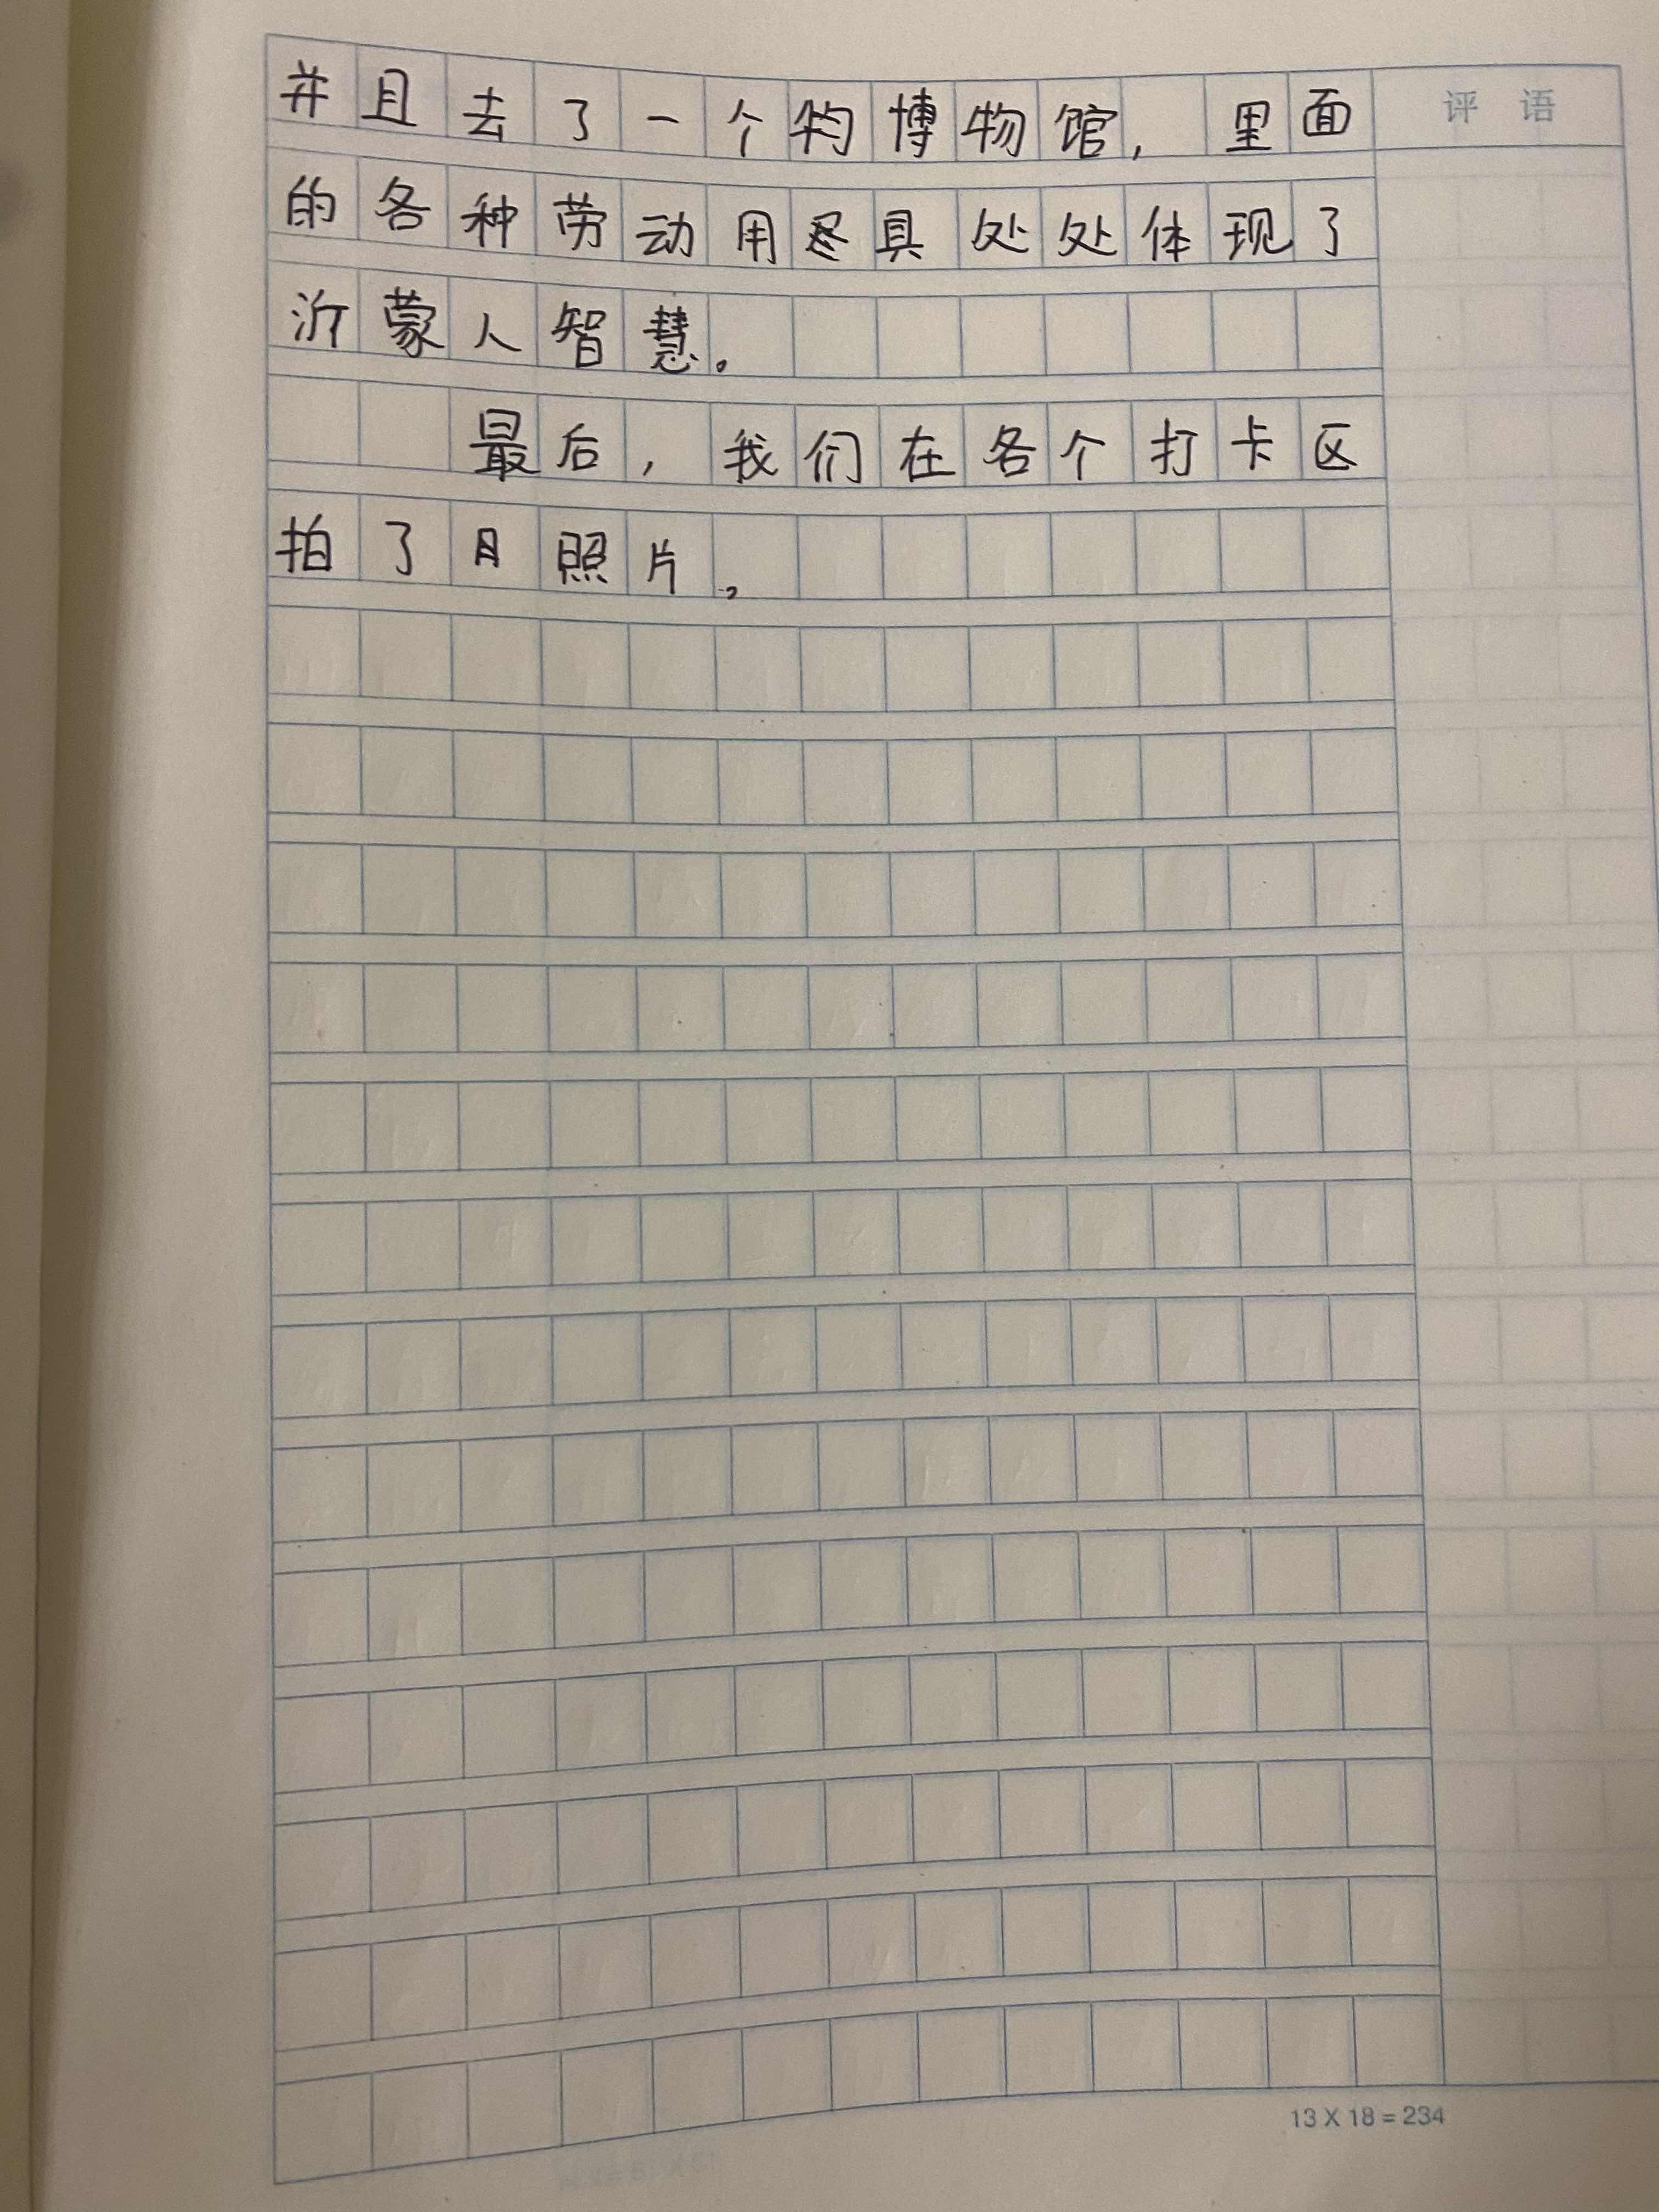 并且去了一个博物馆，里面
评语
的各种劳动用具处处体现了
沂蒙人智慧。
最后，我们在各个打卡区
拍了照片。
13 X 18 = 234